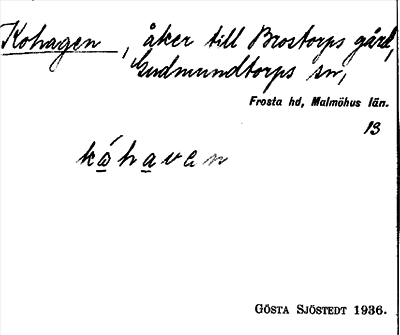 Kohagen, åker till Brostorps gård,
Gudmundtorps sn,
Frosta hd, Malmöhus län.
13
ká̱ha̱ven
GÖSTA SJÖSTEDT 1936.